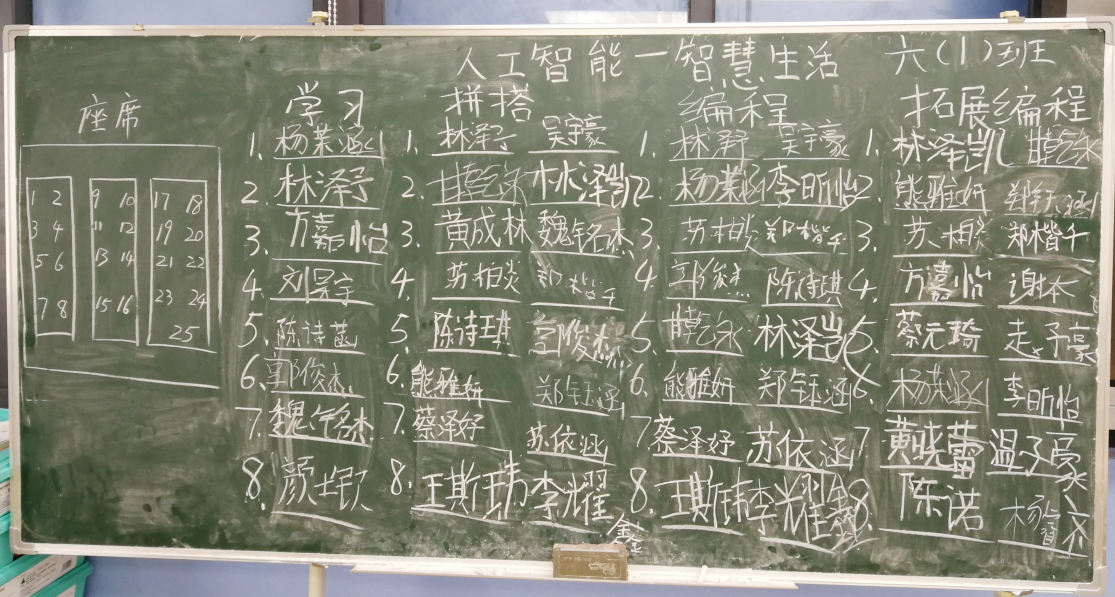 人工智能—智慧生活 六(1)班
座席
学习 拼搭 编程 拓展编程
1. 杨棐涵 1. 林泽 吴宇豪 1. 林泽 吴宇豪 1. 林泽凯 甘乾
2. 林泽 2. 甘乾 林泽凯 2. 杨 李昕怡 2. 熊雅妍 郑钰涵
3. 方嘉怡 3. 黄成林 魏铭杰 3. 苏柏炎 郑楷千 3. 苏柏炎 郑楷千
4. 刘昊宇 4. 苏柏炎 郑楷千 4. 郭俊杰 陈诗琪 4. 方嘉怡 谢
5. 陈诗 5. 陈诗琪 郭俊杰 5. 甘乾 林泽凯 5. 蔡元琦 子豪
6. 郭俊杰 6. 熊雅妍 郑钰涵 6. 熊雅妍 郑钰涵 6. 杨 涵 李昕怡
7. 魏铭杰 7. 蔡泽妤 苏依涵 7 蔡泽妤 苏依涵 7 黄晓蕾 温子豪
8. 颜钦 8. 王斯玮 李耀鑫 8. 王斯玮 李耀鑫 8. 陈诺 杨
1 2 9 10 17 18
3 4 11 12 19 20
5 6 13 14 21 22
7 8 15 16 23 24
25